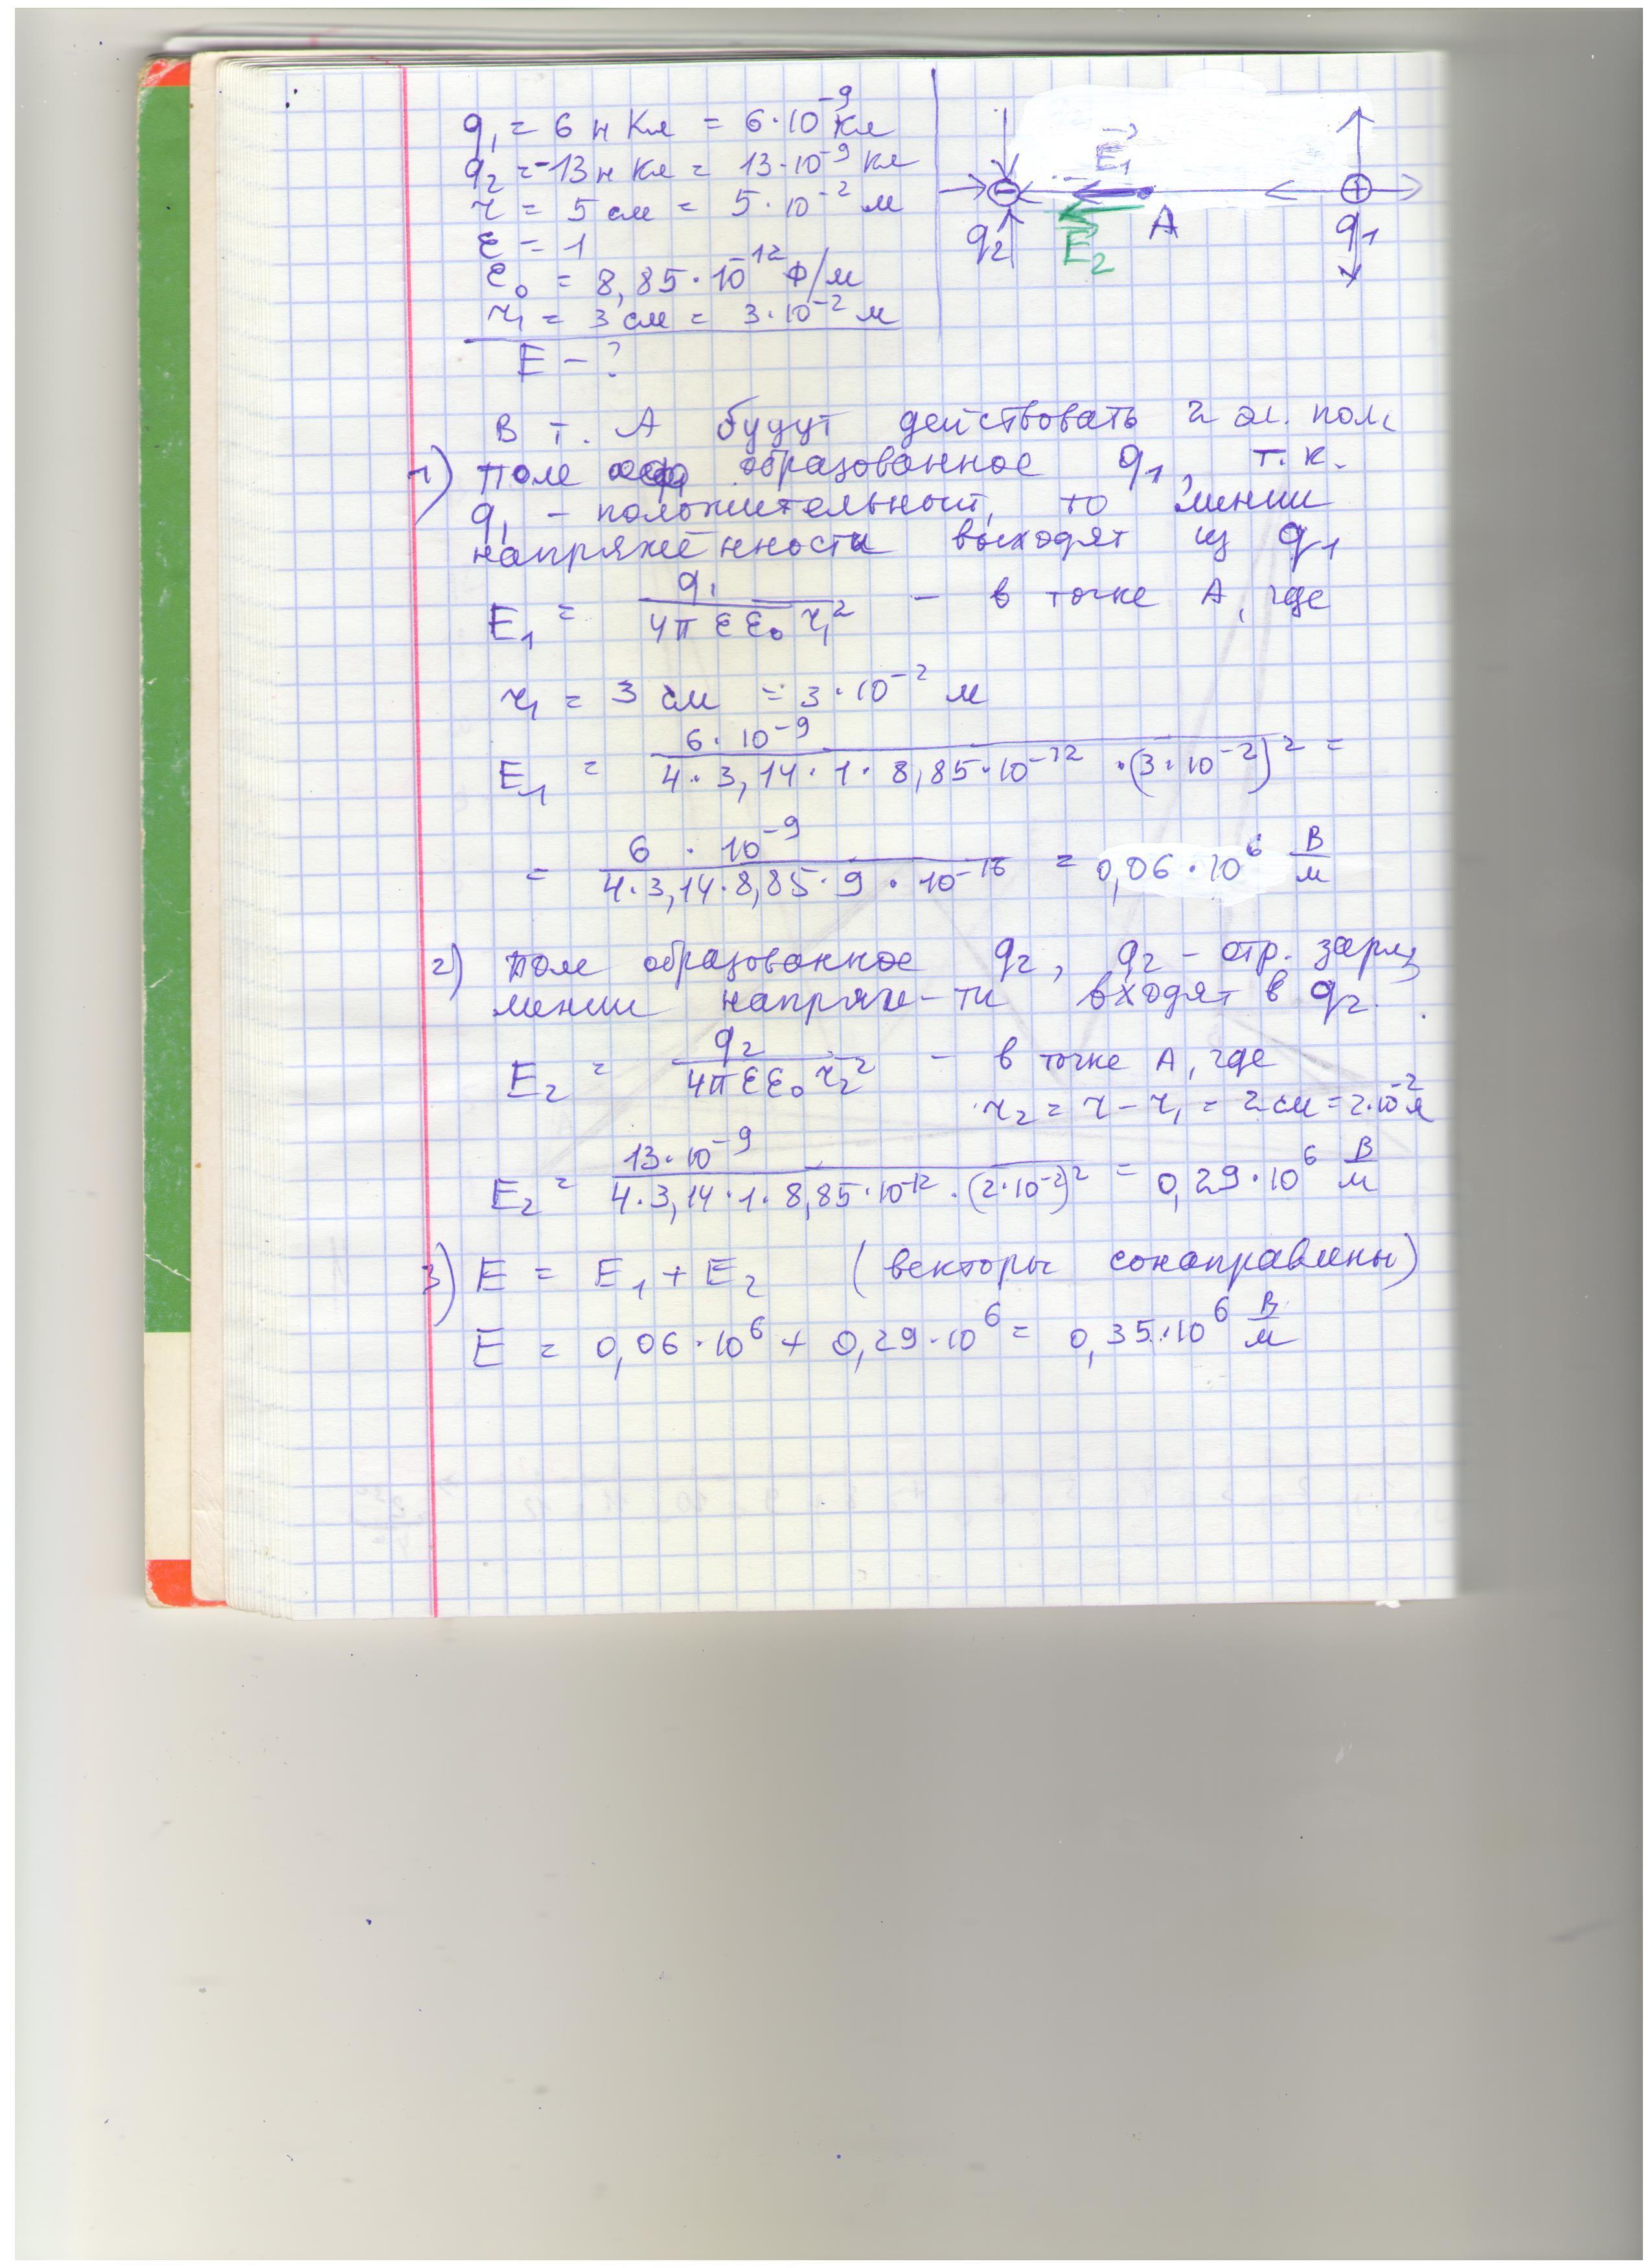 q₁ = 6 нКл = 6·10⁻⁹ Кл
q₂ = -13 нКл = 13·10⁻⁹ Кл
r = 5 см = 5·10⁻² м
ε = 1
ε₀ = 8,85·10⁻¹² Ф/м
r₁ = 3 см = 3·10⁻² м
E - ?
E₁
E₂
A
q₂
q₁
В т. А будут действовать 2 эл. пол
1) поле образованное q₁, т.к.
q₁ - положительный, то линии
напряжённости выходят из q₁
E₁ = q₁ / 4π εε₀ r₁² - в точке А, где
r₁ = 3 см = 3·10⁻² м
E₁ = 6·10⁻⁹ / 4·3,14·1·8,85·10⁻¹²·(3·10⁻²)² =
= 6·10⁻⁹ / 4·3,14·8,85·9·10⁻¹⁶ = 0,06·10⁶ В/м
2) поле образованное q₂, q₂ - отр. заряд
линии напряж-ти входят в q₂.
E₂ = q₂ / 4πεε₀ r₂² - в точке А, где
r₂ = r - r₁ = 2 см = 2·10⁻² м
E₂ = 13·10⁻⁹ / 4·3,14·1·8,85·10⁻¹²·(2·10⁻²)² = 0,29·10⁶ В/м
3) E = E₁ + E₂ (векторы сонаправлены)
E = 0,06·10⁶ + 0,29·10⁶ = 0,35·10⁶ В/м